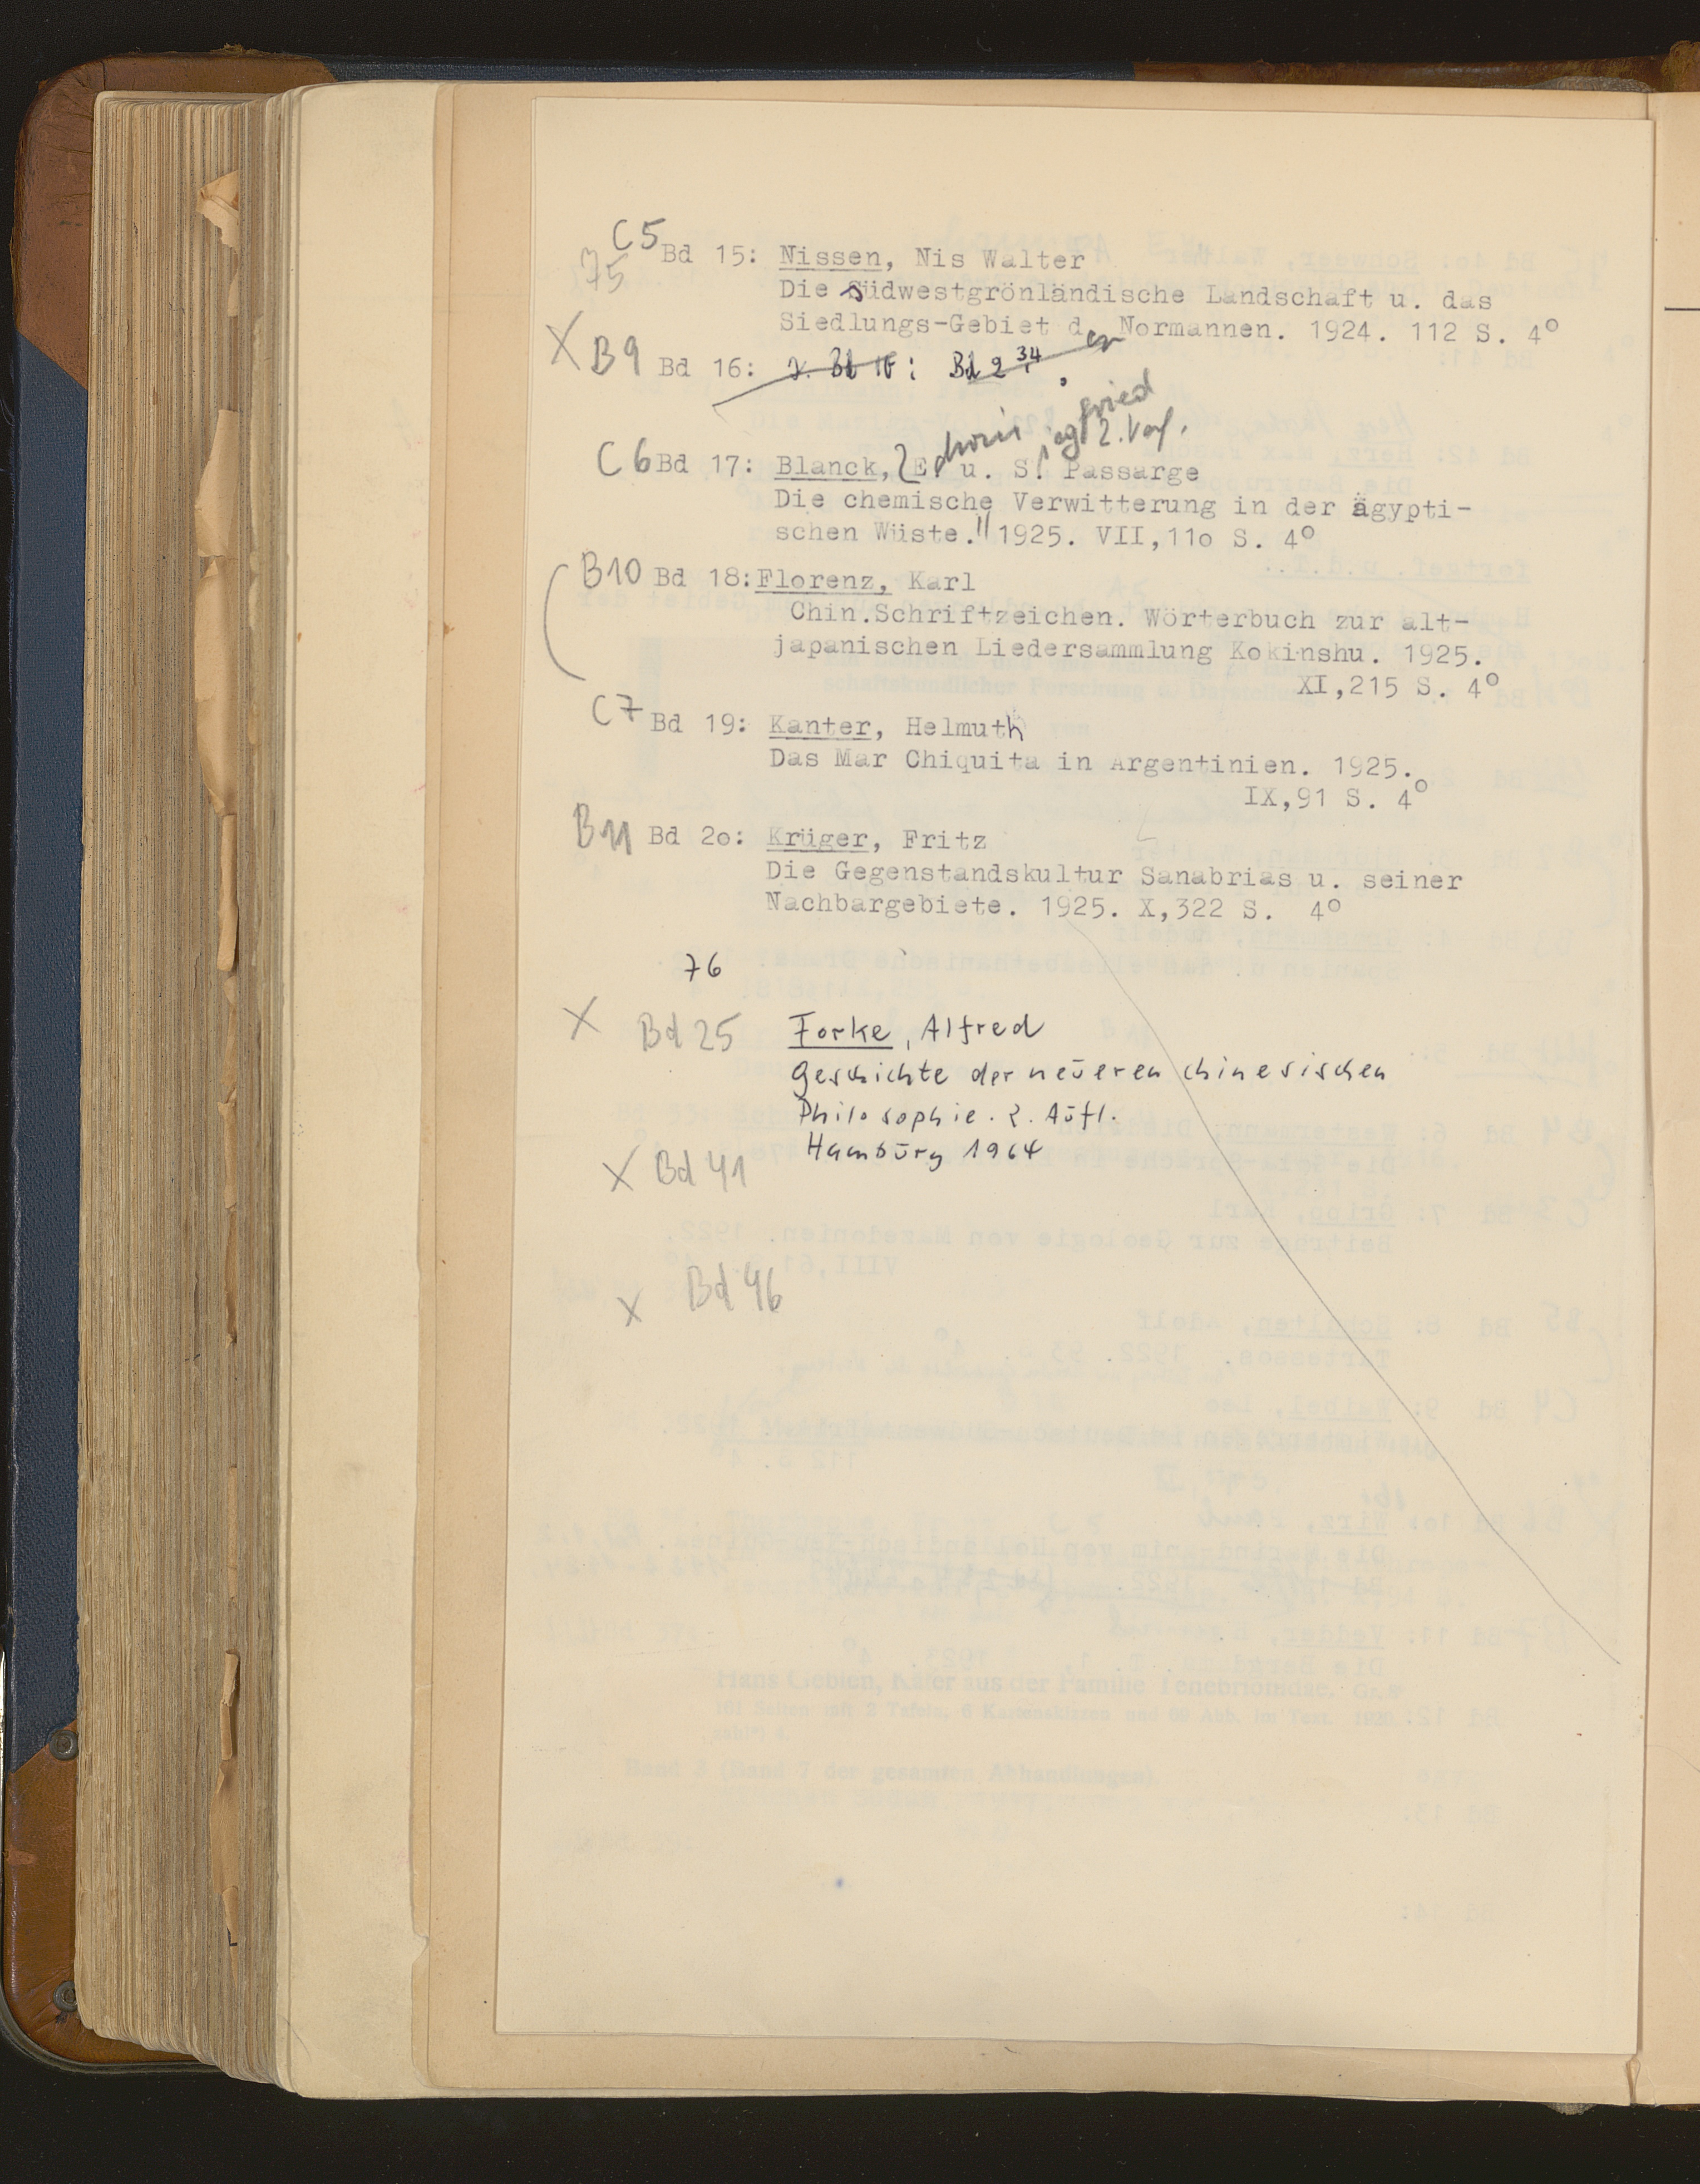 C5 Bd 15: Nissen, Nis Walter
75
Die südwestgrönländische Landschaft u. das
Siedlungs-Gebiet der Normannen. 1924. 112 S. 4°
X B9 Bd 16: Bd 2 34
C6 Bd 17: Blanck, E. u. S. Passarge
2. Verf.
Die chemische Verwitterung in der ägypti-
schen Wüste. 1925. VII,11o S. 4°
B10 Bd 18: Florenz, Karl
Chin.Schriftzeichen. Wörterbuch zur alt-
japanischen Liedersammlung Kokinshu. 1925.
XI,215 S. 4°
C7 Bd 19: Kanter, Helmuth
Das Mar Chiquita in Argentinien. 1925.
IX,91 S. 4°
B11 Bd 2o: Krüger, Fritz
Die Gegenstandskultur Sanabrias u. seiner
Nachbargebiete. 1925. X,322 S. 4°
76
X Bd 25 Forke, Alfred
Geschichte der neueren chinesischen
Philosophie. 2. Aufl.
Hamburg 1964
X Bd 41
X Bd 46